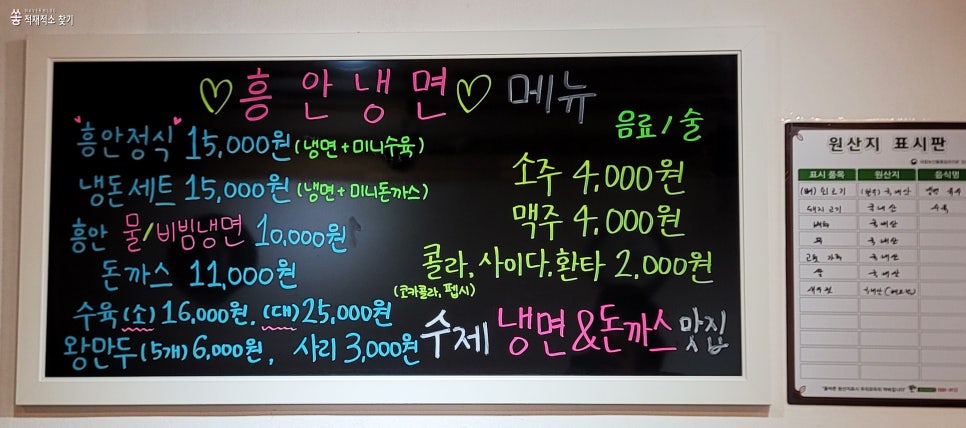 쏭
적재적소 찾기
♡흥안냉면♡ 메뉴
흥안정식 15,000원(냉면+미니수육)
냉돈세트 15,000원(냉면+미니돈까스)
흥안 물/비빔냉면 10,000원
돈까스 11,000원
수육(소)16,000원. (대)25,000원
왕만두(5개)6,000원, 사리 3,000원
음료/술
소주 4,000원
맥주 4,000원
콜라.사이다.환타 2,000원
(코카콜라,펩시)
수제 냉면&돈까스 맛집
원산지 표시판
표시 품목 원산지 음식명
국내산 냉면 육수
돼지고기 국내산 수육
배추 국내산
무 국내산
고춧가루 국내산
쌀 국내산